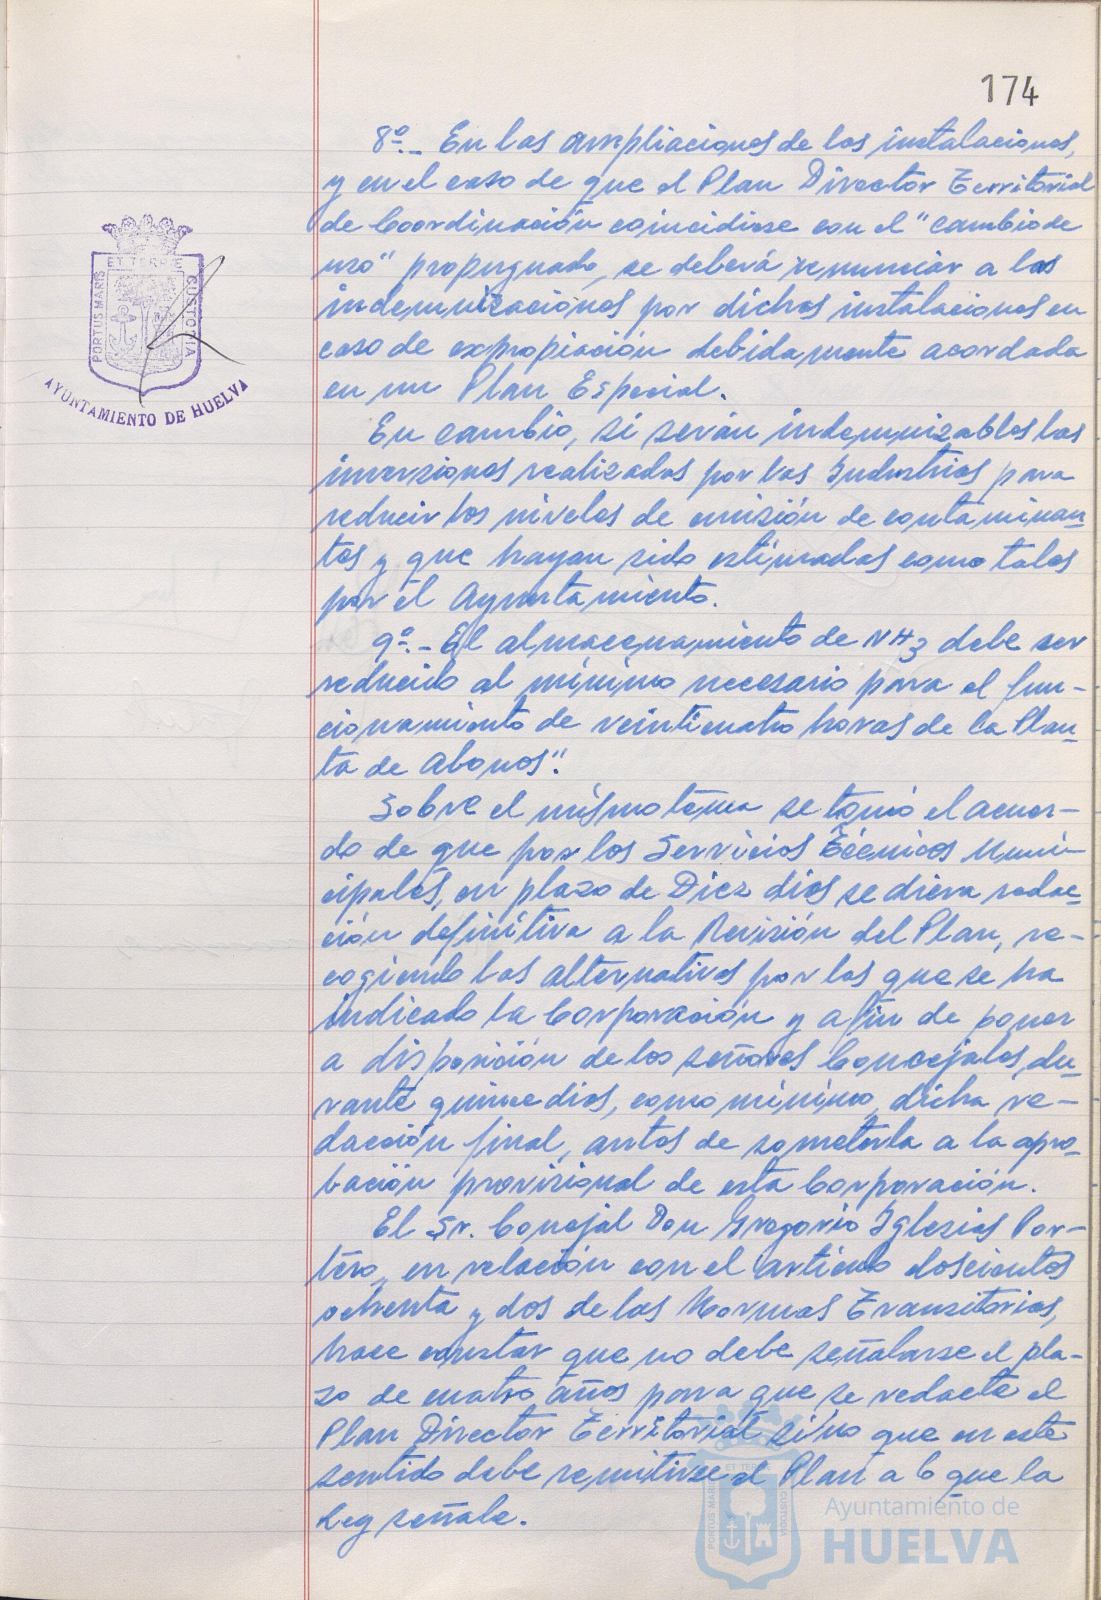 174
8º.- En las ampliaciones de las instalaciones,
y en el caso de que el Plan Director Territorial
de Coordinación coincidiese con el "cambio de
uso" propugnado, se deberá renunciar a las
indemnizaciones por dichas instalaciones en
caso de expropiación debidamente acordada
en un Plan Especial.
En cambio, sí serán indemnizables las
inversiones realizadas por las Industrias para
reducir los niveles de emisión de contaminan-
tes y que hayan sido estimadas como tales
por el Ayuntamiento.
9º.- El almacenamiento de NH3 debe ser
reducido al mínimo necesario para el fun-
cionamiento de veinticuatro horas de la Plan-
ta de Abonos".
Sobre el mismo tema se tomó el acuer-
do de que por los Servicios Técnicos Muni-
cipales, en plazo de Diez dias se diera redac-
ción definitiva a la Revisión del Plan, re-
cogiendo las alternativas por las que se ha
indicado la Corporación y a fin de poner
a disposición de los señores Concejales, du-
rante quince dias, como mínimo, dicha re-
dacción final, antes de someterla a la apro-
bación provisional de esta Corporación.
El Sr. Concejal Don Gregorio Iglesias Por-
tero, en relación con el artículo doscientos
ochenta y dos de las Normas Transitorias,
hace constar que no debe señalarse el pla-
zo de cuatro años para que se redacte el
Plan Director Territorial sino que en este
sentido debe remitirse el Plan a lo que la
Ley señale.
ET TERRE
PORTUS MARIS
CUSTODIA
AYUNTAMIENTO DE HUELVA
ET TERRE
PORTUS MARIS
CUSTODIA
Ayuntamiento de
HUELVA